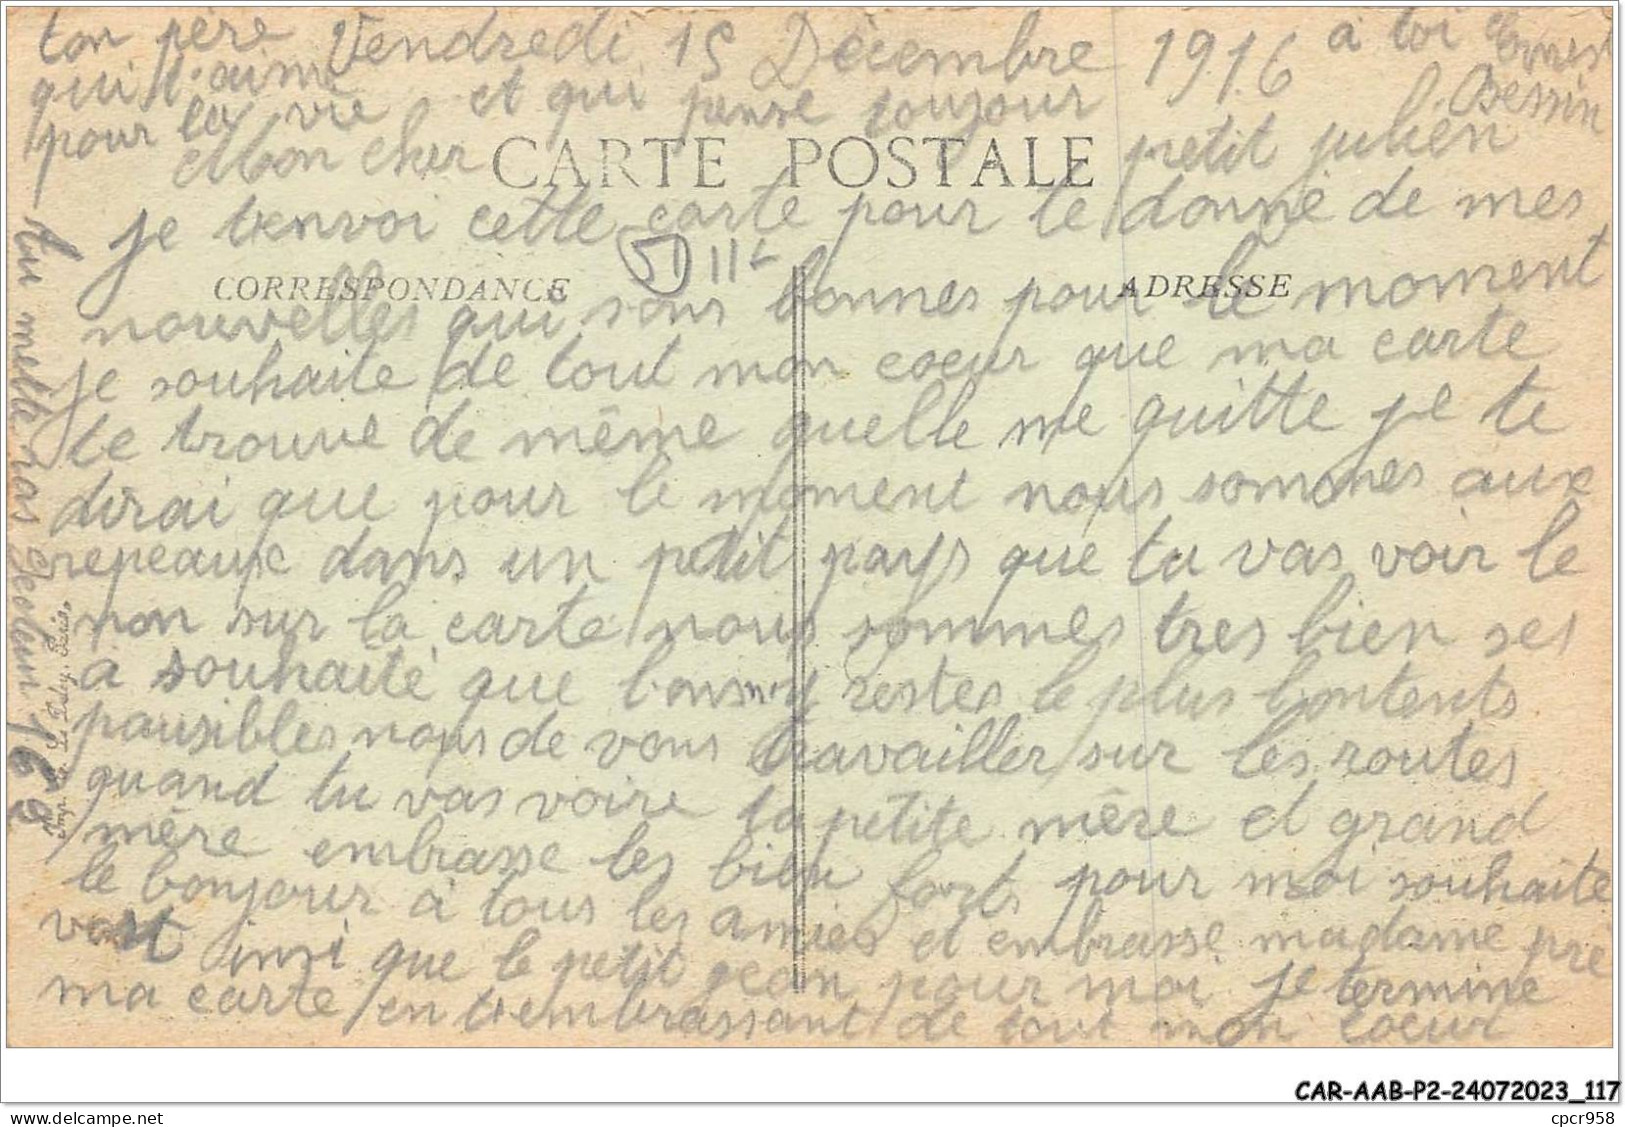 Vendredi 15 Décembre 1916
Mon cher petit julien
je t'envoi cette carte pour te donné de mes
nouvelles qui sons bonnes pour le moment
je souhaite de tout mon coeur que ma carte
te trouve de même quelle me quitte je te
dirai que pour le moment nous sommes aux
repeaux dans un petit pays que tu vas voir le
non sur la carte nous sommes tres bien ses
a souhaité que l'on y restes le plus lontents
pausibles nous de vons travailler sur les routes
quand tu vas voire ta petite mère et grand
mère embrasse les bien forts pour moi souhaite
le bonjour à tous les amies et embrasse madame pré
vost insi que le petit gean pour moi je termine
ma carte en t'embrassant de tout mon coeur
ton père
qui t'aime
pour la vie et qui pense toujour
à toi Ernest
Bessin
tu mettra 16
CARTE POSTALE
CORRESPONDANCE
ADRESSE
51 112
Imp. Le Deley, Paris
CAR-AAB-P2-24072023_117
cpcr958